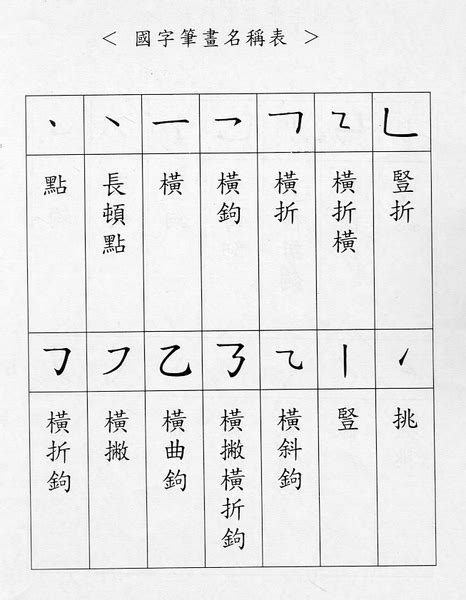 < 國字筆畫名稱表 >
丶 ㇔ 一 乛 ㇕ ㇍ ㇄
點
長頓點
橫
橫鉤
橫折
橫折橫
豎折
㇆ ㇇ 乙 ㇌ ⺄ 丨 ㇀
橫折鉤
橫撇
橫曲鉤
橫撇橫折鉤
橫斜鉤
豎
挑